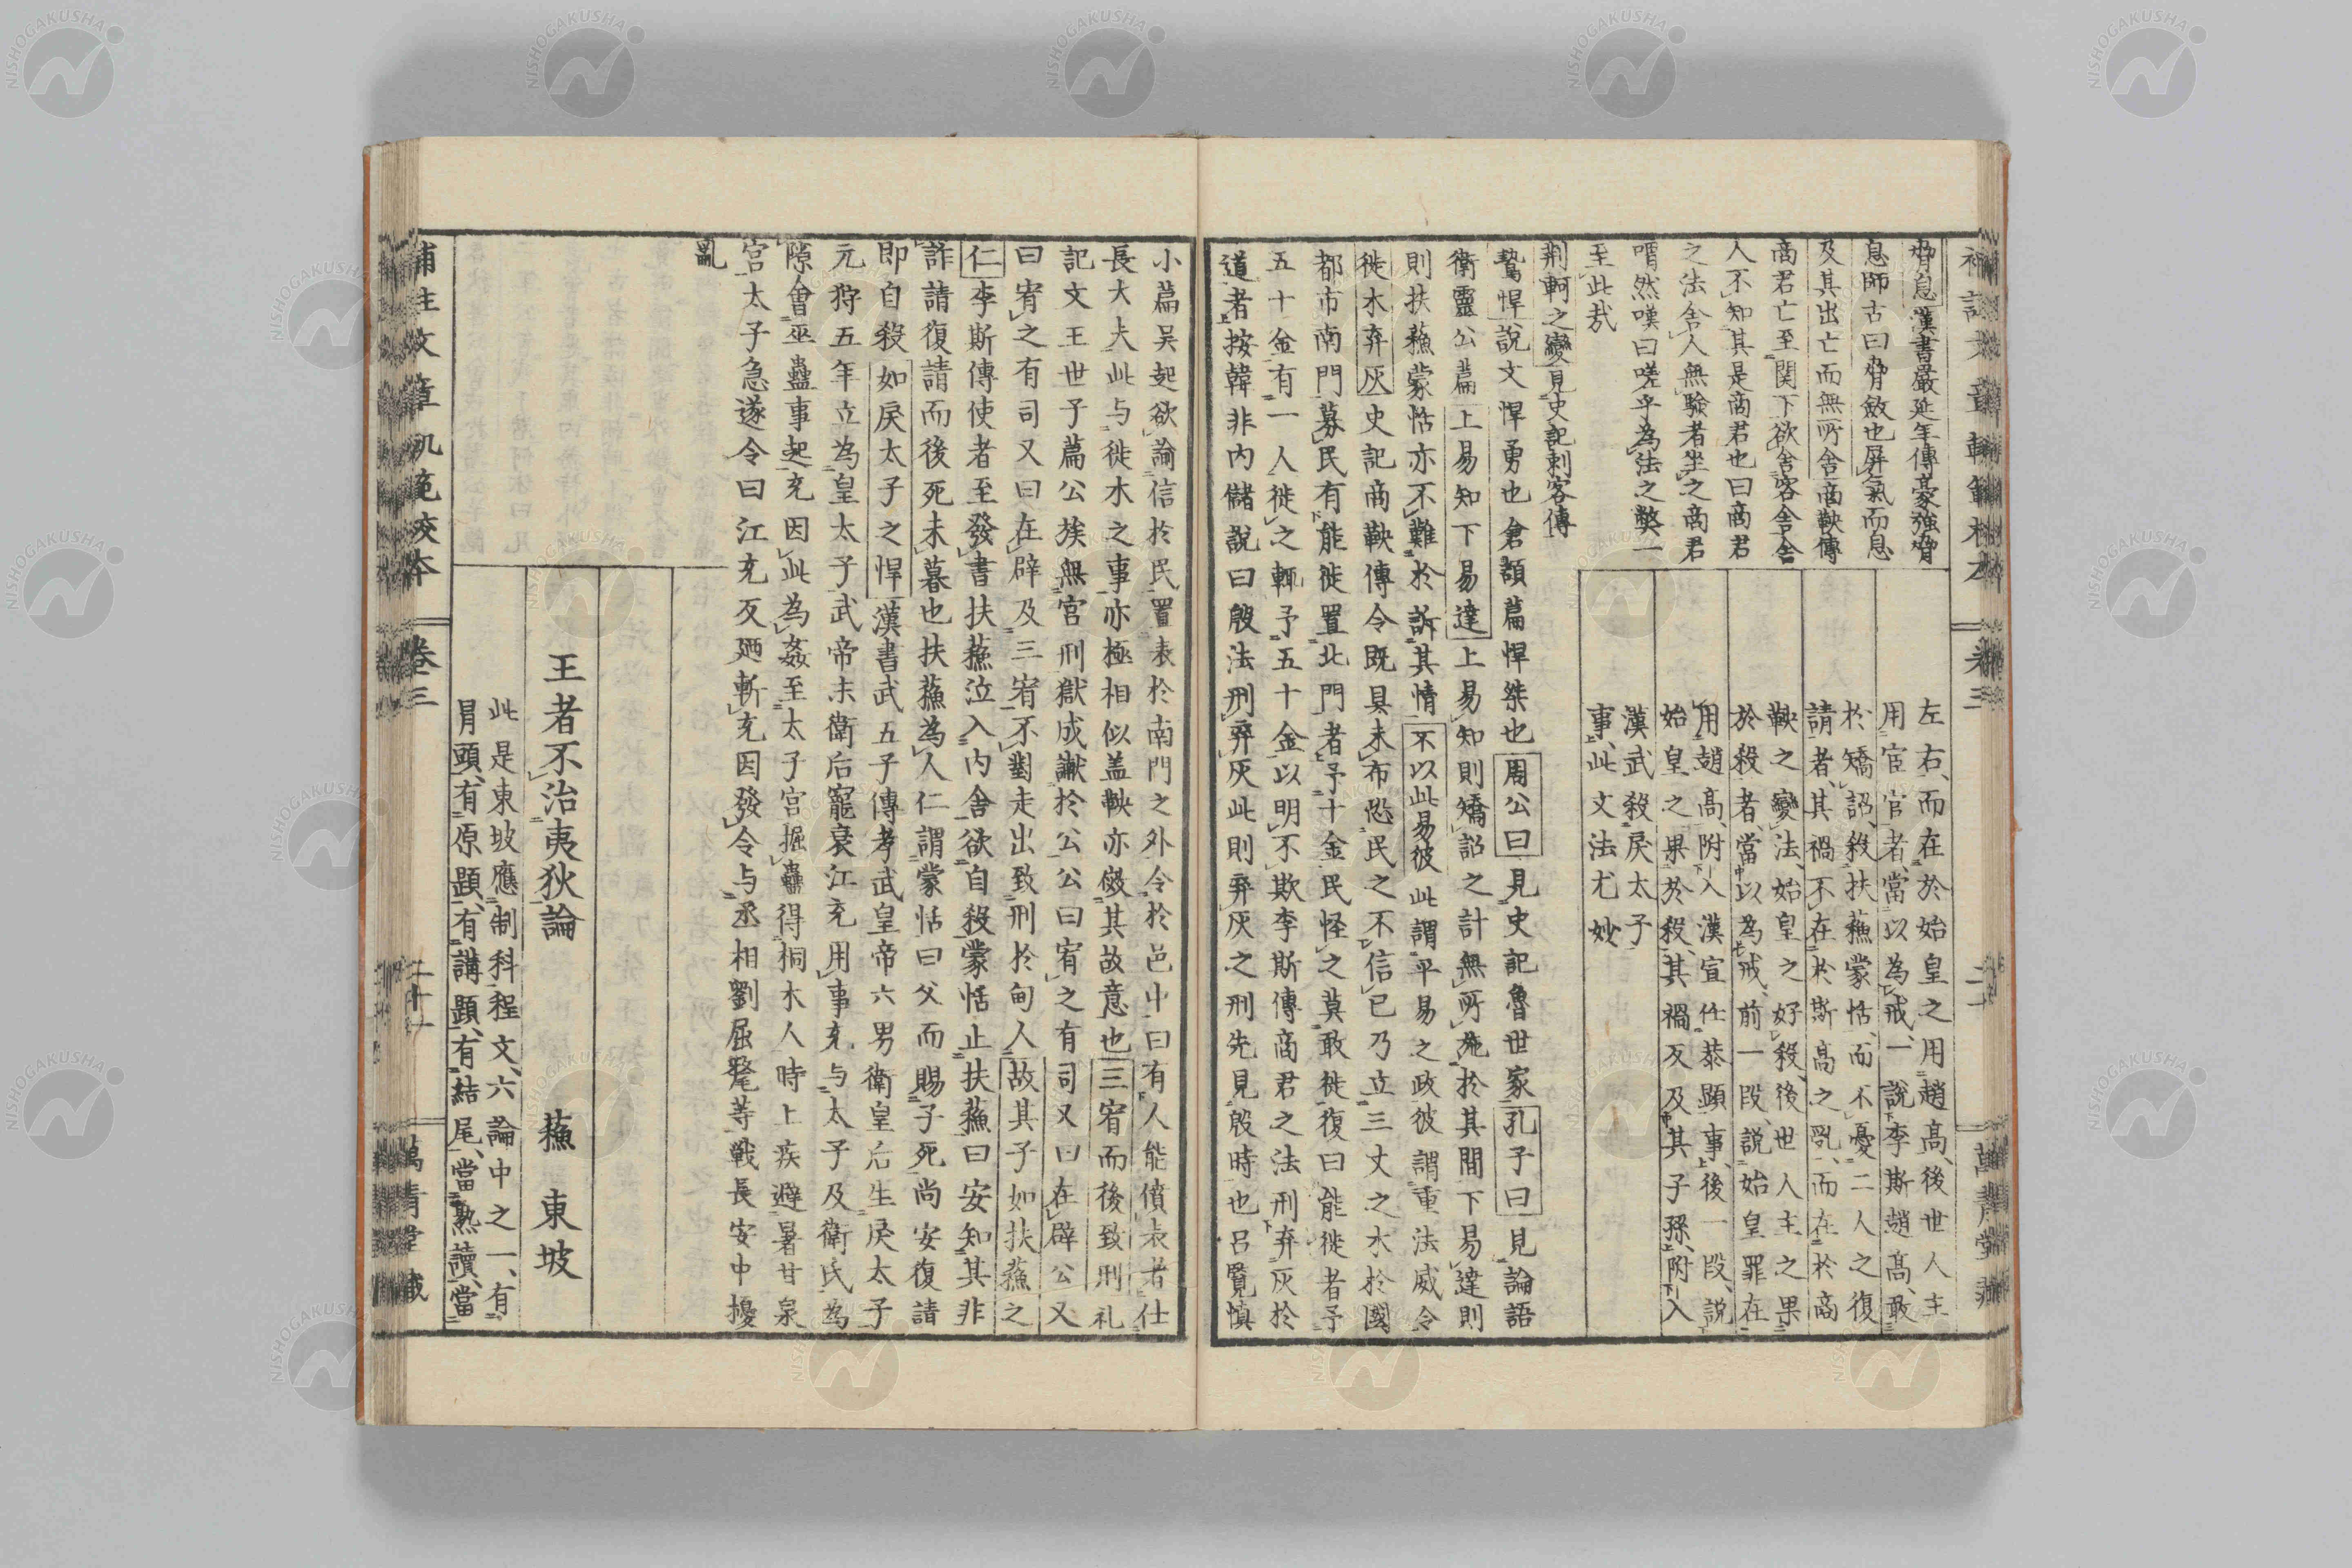 脅息漢書嚴延年傳豪強脅
息師古曰脅斂也屏氣而息
及其出亡而無所舍商鞅傳
商君亡至関下欲舍客舍舍
人不知其是商君也曰商君
之法舍人無驗者坐之商君
喟然嘆曰嗟乎為法之弊一
至此哉
荆軻之變見史記刺客傳
左右、而在於始皇之用趙高、後世人主
用宦官者、當以為戒、一說李斯趙高、敢
於矯詔、殺扶蘓蒙恬、而不憂二人之復
請者、其禍不在於斯高之乱、而在於商
鞅之變法、始皇之好殺、後世人主之果
於殺者、當以為戒、前一段、説始皇罪在
用趙高、附入漢宣任恭顕事、後一段、説
始皇之果於殺、其禍反及其子孫、附入
漢武殺戾太子
事、此文法尤妙
鷙悍説文悍勇也倉頡篇悍桀也周公曰見史記魯世家孔子曰見論語
衛靈公篇上易知下易達上易知則矯詔之計無所施於其間下易達則
則扶蘓蒙恬亦不難於訴其情不以此易彼此謂平易之政彼謂重法威令
徙木弃灰史記商鞅傳令既具未布恐民之不信已乃立三丈之木於國
都市南門募民有能徙置北門者予十金民怪之莫敢徙復曰能徙者予
五十金有一人徙之輒予五十金以明不欺李斯傳商君之法刑弃灰於
道者按韓非内儲説曰殷法刑弃灰此則弃灰之刑先見殷時也呂覧慎
小篇吴起欲諭信於民置表於南門之外令於邑中曰有人能僨表者仕
長大夫此与徙木之事亦極相似盖鞅亦傚其故意也三宥而後致刑礼
記文王世子篇公族無宮刑獄成讞於公公曰宥之有司又曰在辟公又
曰宥之有司又曰在辟及三宥不對走出致刑於甸人故其子如扶蘓之
仁李斯傳使者至發書扶蘓泣入内舍欲自殺蒙恬止扶蘓曰安知其非
詐請復請而後死未暮也扶蘓為人仁謂蒙恬曰父而賜子死尚安復請
即自殺如戾太子之悍漢書武五子傳孝武皇帝六男衛皇后生戾太子
元狩五年立為皇太子武帝末衛后寵衰江充用事充与太子及衛氏為
隙會巫蠱事起充因此為姦至太子宮掘蠱得桐木人時上疾避暑甘泉
宮太子急遂令曰江充反廼斬充因發令与丞相劉屈氂等戦長安中擾
亂
王者不治夷狄論　蘓東坡
此是東坡應制科程文、六論中之一、有
冐頭、有原題、有講題、有結尾、當熟讀、當
補註文章軌範校本　卷三　二十一　萬青堂蔵